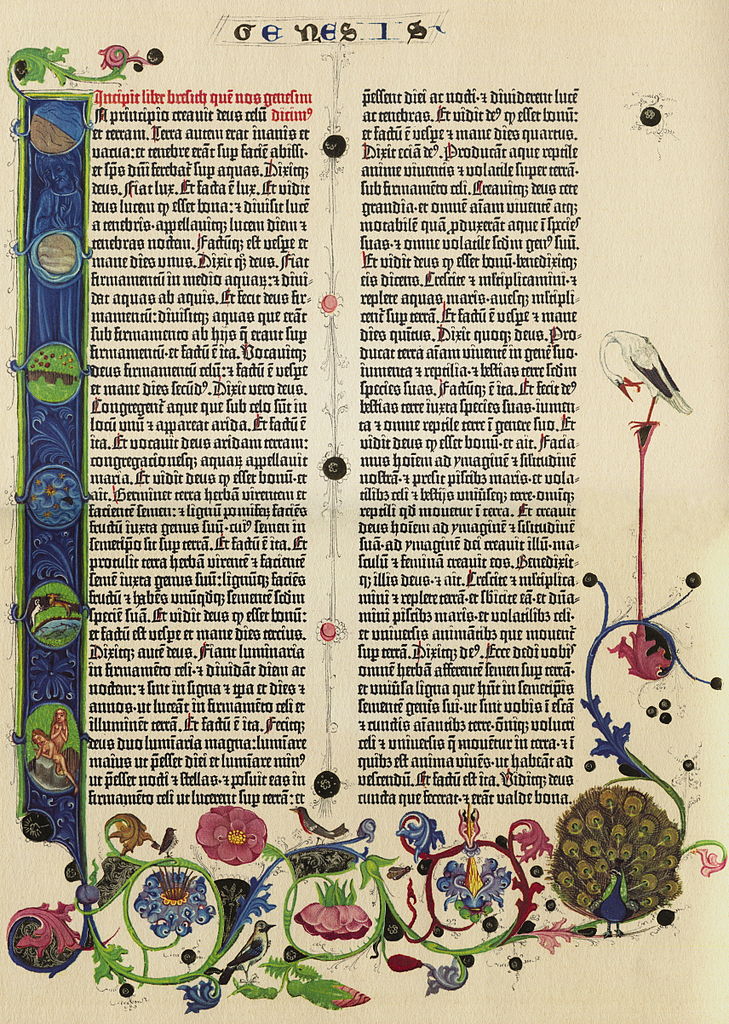 GENESIS
Incipit liber bresith quē nos genesim
In principio creavit deus celū dicim⁹
et terram. Terra autem erat inanis et
vacua: et tenebre erāt sup faciē abissi:
et sp̄s dn̄i ferebat᷑ sup aquas. Dixitq̄
deus. Fiat lux. Et facta ē lux. Et vidit
deus lucem qɔ esset bona: ⁊ divisit lucē
a tenebris. appellavitq̄ lucem diem ⁊
tenebras noctem. Factūq̄ est vespe et
mane dies unus. Dixit qɔ̄ deus. Fiat
firmamentū in medio aquaꝝ: ⁊ divi-
dat aquas ab aquis. Et fecit deus fir-
mamentū: divisitq̄ aquas que erāt
sub firmamento ab hijs q̄ erant sup
firmamentū: et factū ē ita. Vocavitq̄
deus firmamentū celū: ⁊ factū ē vespe
et mane dies secūd⁹. Dixit vero deus.
Congregent᷑ aque que sub celo sūt in
locū unū ⁊ appareat arida. Et factū ē
ita. Et vocavit deus aridam terram:
congregacionesq̄ aquaꝝ appellavit
maria. Et vidit deus qɔ esset bonū. et
ait. Germinet terra herbā virentem et
facientē semen: ⁊ lignū pomifeꝝ faciēs
fructū iuxta genus suū. cui⁹ semen in
semetipō sit sup terrā. Et factū ē ita. Et
protulit terra herbā virentē ⁊ facientē
semē iuxta genus suū: lignūq̄ faciēs
fructū ⁊ habēs unūqdq̄ sementē scdm
speciē suā. Et vidit deus qɔ esset bonū:
et factū est vespe et mane dies tercius.
Dixitq̄ autē deus. Fiant luminaria
in firmamēto celi. ⁊ dividāt diem ac
noctem: ⁊ sint in signa ⁊ tpa et dies ⁊
annos. ut luceāt in firmamēto celi et
illuminēt terrā. Et factū ē ita. Fecitq̄
deus duo luminaria magna: luminare
maius ut pesset diei et luminare min⁹
ut pesset nocti ⁊ stellas. ⁊ posuit eas in
firmamēto celi ut lucerent sup terrā: et
pessent diei ac nocti. ⁊ dividerent lucē
ac tenebras. Et vidit de⁹ qɔ esset bonū:
et factū ē vespe ⁊ mane dies quartus.
Dixit eciā de⁹. Producāt aque reptile
anime viventis ⁊ volatile super terrā.
sub firmamēto celi. Creavitq̄ deus cete
grandia. et omnē aīam viventē atq̄
motabilē quā pduxerāt aque ī species
suas. ⁊ omne volatile scdm gen⁹ suū.
Et vidit deus qɔ esset bonū. benedixitq̄
eis dicens. Crescite ⁊ mltiplicamini. ⁊
replete aquas maris. avesq̄ mltipli-
cent᷑ sup terrā. Et factū ē vespe ⁊ mane
dies quintus. Dixit quoq̄ deus. Pro-
ducat terra aīam viventē in genē suo.
iumenta ⁊ reptilia. ⁊ bestias terre scdm
species suas. Factūq̄ ē ita. Et fecit de⁹
bestias terre iuxta species suas. iumen-
ta ⁊ omne reptile terre ī genere suo. Et
vidit deus qɔ esset bonū. et ait. Facia-
mus hoīem ad ymaginē ⁊ silitudinē
nostrā. ⁊ presit piscibȝ maris. et vola-
tilibȝ celi ⁊ bestijs universeq̄ terre. omniq̄
reptili qd movetur ī terra. Et creavit
deus hoīem ad ymaginē ⁊ silitudinē
suā. ad ymaginē dei creavit illū. ma-
sculū ⁊ feminā creavit eos. Benedixit-
q̄ illis deus. ⁊ ait. Crescite ⁊ mltiplica-
mini ⁊ replete terrā. et sbicite eā. et dn̄a-
mini piscibȝ maris. et volatilibȝ celi.
et universis animātibȝ que moventᷣ
sup terrā. Dixitq̄ de⁹. Ecce dedi vobis
omnē herbā afferentē semen sup terrā.
et universa ligna que hn̄t in semetipīs
sementē genēis sui. ut sint vobis ī escā
⁊ cunctis aīantibȝ terre. omniq̄ volucri
celi ⁊ universis q̄ moventᷣ in terra. ⁊ ī
quibȝ est anima vivēs. ut habeāt ad
vescendū. Et factū est ita. Viditq̄ deus
cuncta que fecerat. ⁊ erāt valde bona.